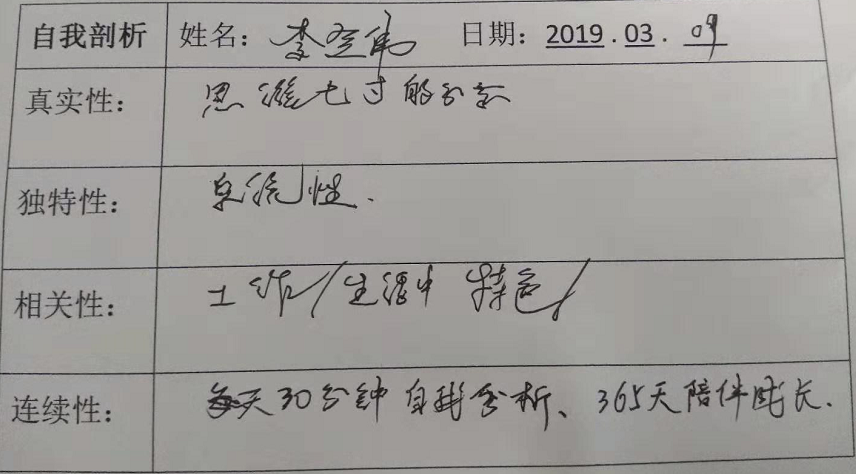 自我剖析 姓名：李登伟 日期：2019.03.09
真实性： 思维七寸的分享
独特性： 系统性.
相关性： 工作/生活中 特色/
连续性： 每天30分钟自我分析、365天陪伴成长.